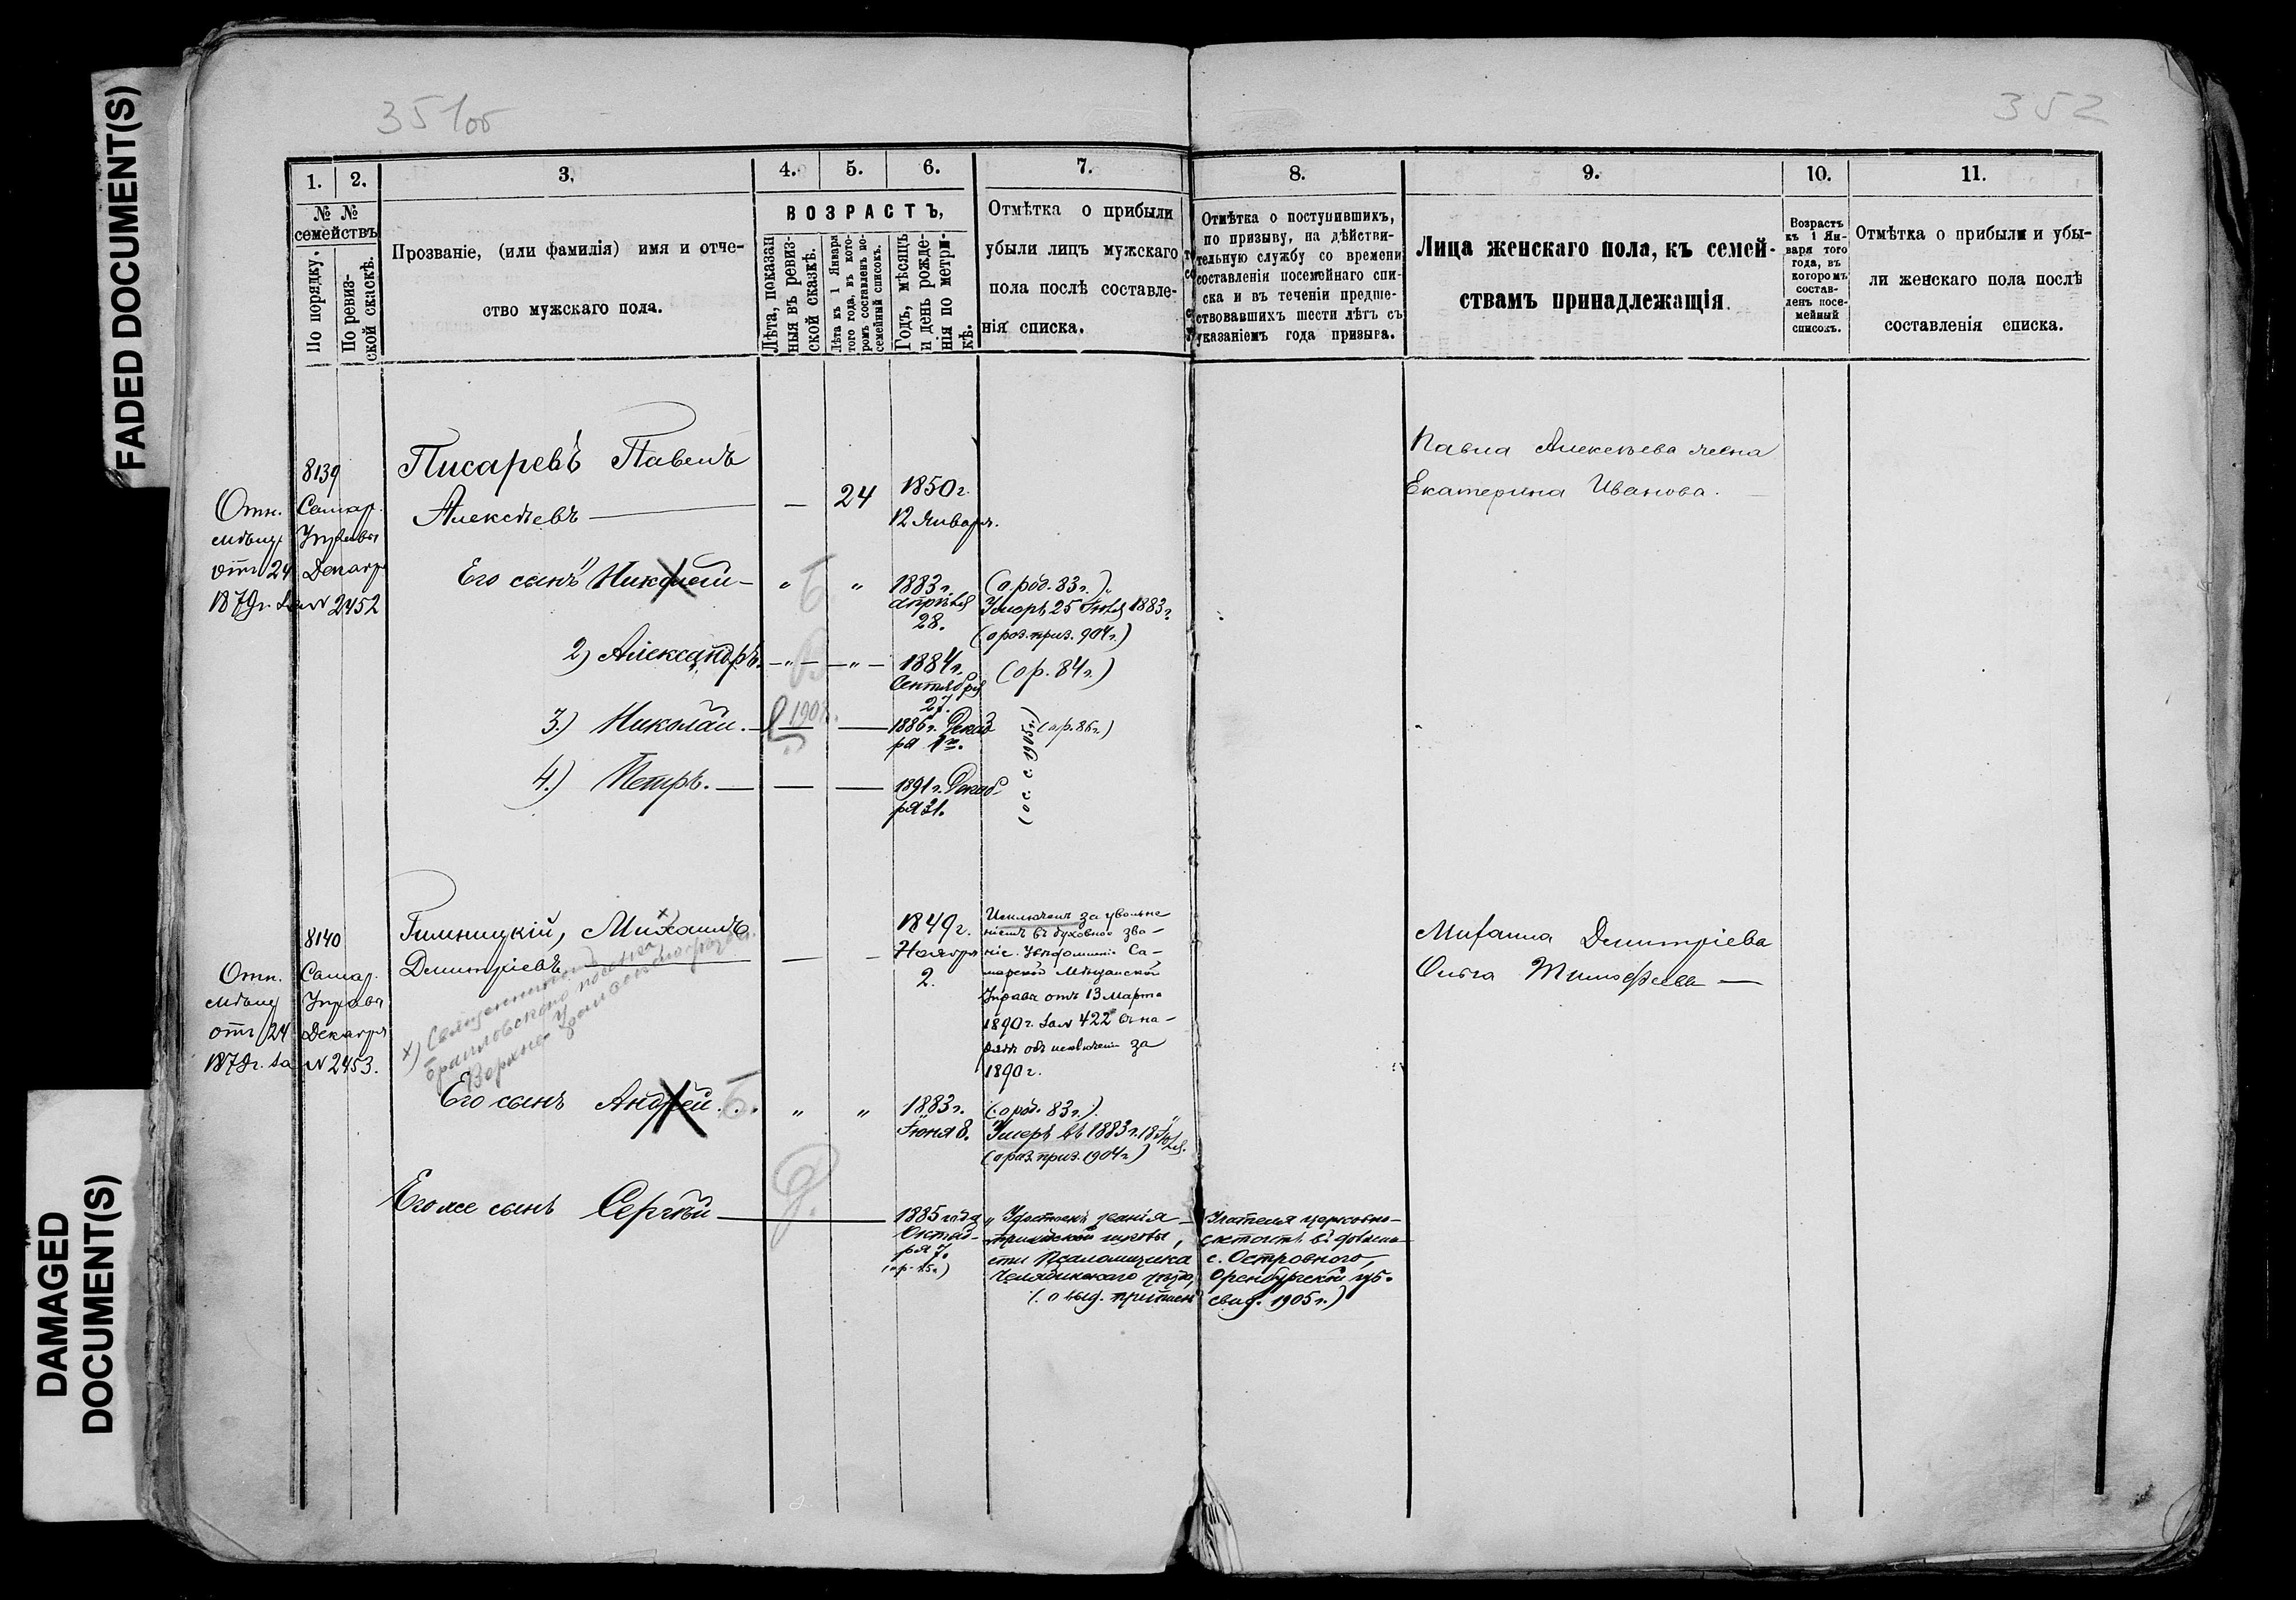 FADED DOCUMENT(S)
DAMAGED
DOCUMENT(S)
351об
352
1.
2.
3.
4.
5.
6.
7.
8.
9.
10.
11.
№ №
семействъ
По порядку.
По ревиз-
ской скаскѣ.
Прозваніе, (или фамилія) имя и отче-
ство мужскаго пола.
ВОЗРАСТЪ,
Лѣта, показан
ныя въ ревиз-
ской сказкѣ.
Лѣта къ 1 Января
того года, въ кото-
ромъ составленъ по-
семейный списокъ.
Годъ, мѣсяцъ
и день рожде-
нія по метри-
кѣ.
Отмѣтка о прибыли
убыли лицъ мужскаго
пола послѣ составле-
нія списка.
Отмѣтка о поступившихъ,
по призыву, на дѣйстви-
тельную службу со времени
составленія посемейнаго спи-
ска и въ теченіи предше-
ствовавшихъ шести лѣтъ съ
указаніемъ года призыва.
Лица женскаго пола, къ семей-
ствамъ принадлежащія.
Возрастъ
къ 1 Ян-
варя того
года, въ
которомъ
состав-
ленъ посе-
мейный
списокъ.
Отмѣтка о прибыли и убы-
ли женскаго пола послѣ
составленія списка.
8139
Отн. Самар.
мѣщ. Управы
отъ 24 Декабр
1879г. за N 2452
Писаревъ Павелъ
Алексѣевъ — 24 1850г.
12 Января.
Павла Алексѣева жена
Екатерина Иванова.
Его сынъ Николай — " Б " 1883г.
Апрѣля
28.
(о род. 83г.)
Умеръ 25 Іюля 1883г.
(о роз. приз. 904г.)
2) Александръ. — " — — " — 1884г.
Сентября
27.
(о р. 84г.)
3.) Николай. — 1886г. Декаб
ря 1го.
(о р. 86г.)
4.) Петръ. — 1891г. Декаб-
ря 31.
(о с. с. 1905г.)
8140
Отн. Самар.
мѣщ Управы
отъ 24 Декабря
1879г. за N 2453.
Михаилъ
Дмитріевъ
1849г.
Ноября
2.
Исключенъ за увольне
ніемъ въ духовное зва-
ніе. Увѣдомленіе Са-
марской Мѣщанской
Управы отъ 13 Марта
1890г. за N 422
объ исключеніи за
1890г.
Михаила Дмитріева
Ольга Тимофеева —
х) Священникъ
Его сынъ Андрей. Б. " " 1883г.
Іюня 8.
(о род. 83г.)
Умеръ въ 1883г. 18 Іюля.
(о роз. приз. 1904г.)
Его же сынъ Сергѣй — 1885 года
Октяб-
ря 7.
" Удостоенъ званія — Учителя церковно-
приходской школы, состоитъ въ должно-
сти Псаломщика с. Островного,
Челябинскаго уѣзда, Оренбургской губ.
(о выд. припис. свид. 1905г.)